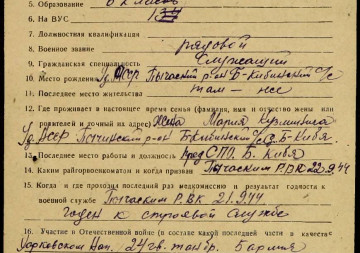 5. Образование 6 классов
6. На ВУС 134
7. Должностная квалификация
8. Военное звание рядовой
9. Гражданская специальность служащий
10. Место рождения Уд. АССР Пычаский р-он Б-Кибинский с/с
11. Последнее место жительства там-же
12. Где проживает в настоящее время семья (фамилия, имя и отчество жены или
родителей и дочный адрес) жена Мария Кузминична
Уд. АССР Пычинский р-он Б-Кибинский с/с д. Б-Кибья
13. Последнее место работы и должность СПО Б. Кибья
14. Каким райгорвоенкоматом и когда призван Пычаским РВК 22.9.44
15. Когда и где проходил последний раз медкомиссию и результат годности к
военной службе Пычаским РВК 21.9.44
годен к строевой службе
16. Участие в Отечественной войне (в составе какой последней части в качестве
24 гв. танбр. 5 армия